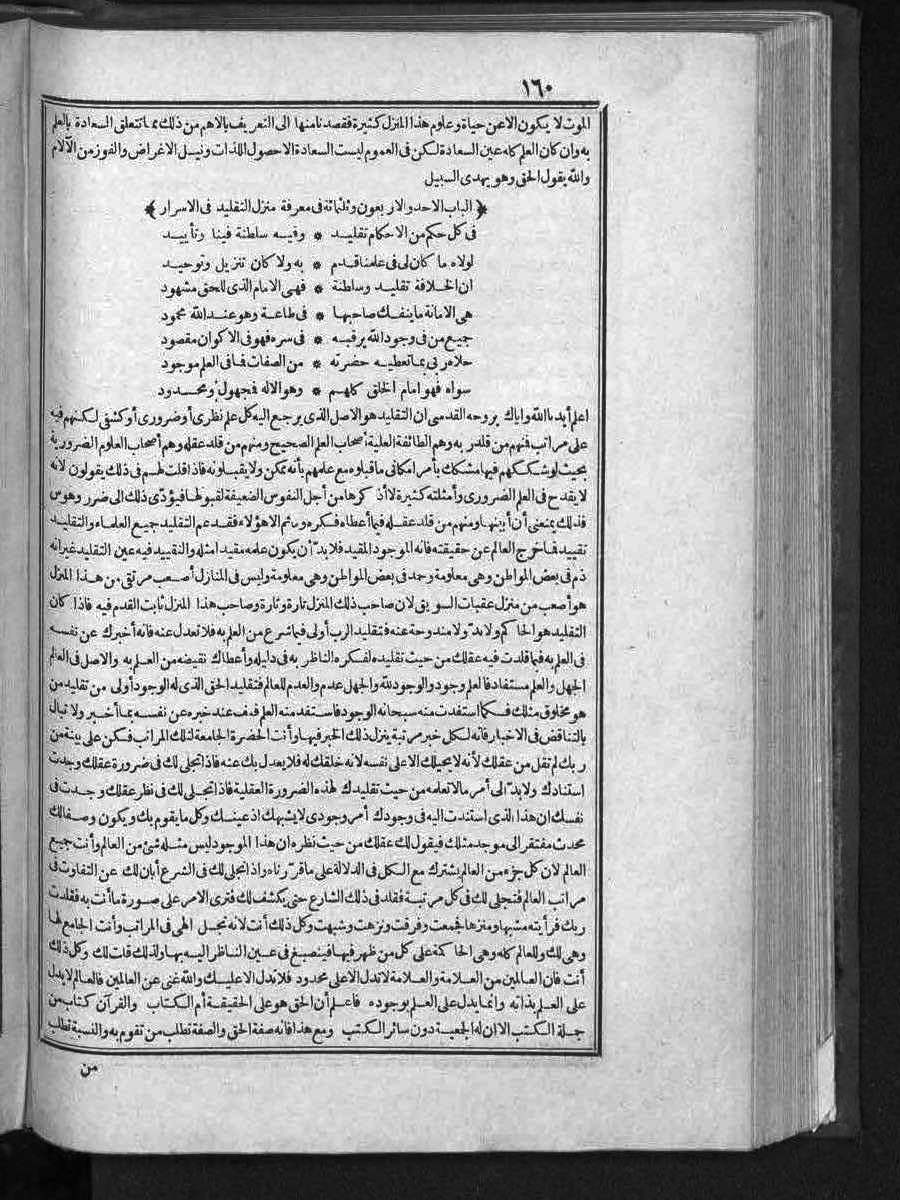 ١٦٠
الموت لا يكون الا عن حياة وعلوم هذا المنزل كثيرة فقصدنا منها الى التعريف بالاهم من ذلك مما تتعلق السعادة بالعلم
به وان كان العلم كله عين السعادة لكن في العموم ليست السعادة الا حصول اللذات ونيل الاغراض والفوز من الآلام
والله يقول الحق وهو يهدى السبيل
﴿الباب الاحد والاربعون وثلثمائة في معرفة منزل التقليد في الاسرار﴾
في كل حكم من الاحكام تقليد * وفيه سلطنة فينا وتأييد
لولاه ما كان لى في علمنا قدم * به ولا كان تنزيل وتوحيد
ان الخلافة تقليد وسلطنة * فهى الامام الذى للحق مشهود
هى الامانة ما ينفك صاحبها * في طاعة وهو عند الله محمود
جميع من في وجود الله يرقبه * في سره فهو في الاكوان مقصود
حلاه ربى بما تعطيه حضرته * من الصفات فما في العلم موجود
سواه فهو امام الخلق كلهم * وهو الاله فمجهول ومحدود
اعلم أيدنا الله واياك بروحه القدسى ان التقليد هو الاصل الذى يرجع اليه كل علم نظرى أو ضرورى أو كشفى لكنهم فيه
على مراتب فمنهم من قلد ربه وهم الطائفة العلية أصحاب العلم الصحيح ومنهم من قلد عقله وهم أصحاب العلوم الضرورية
بحيث لو شككهم فيها مشكك بأمر امكانى ما قبلوه مع علمهم بأنه ممكن ولا يقبلونه فاذا قلت لهم في ذلك يقولون لانه
لا يقدح في العلم الضرورى وأمثلته كثيرة لا أذكرها من أجل النفوس الضعيفة لقبولها فيؤدّى ذلك الى ضرر وهوس
فذلك يمنعنى أن أبينها ومنهم من قلد عقله فيما أعطاه فكره وما ثم الا هؤلاء فقد عم التقليد جميع العلماء والتقليد
تقييد فما خرج العالم عن حقيقته فانه الموجود المقيد فلا بدّ أن يكون علمه مقيد امثله والتقييد فيه عين التقليد غير انه
ذم في بعض المواطن وهى معلومة وحمد في بعض المواطن وهى معلومة وليس في المنازل أصعب مرتقى من هذا المنزل
هو أصعب من منزل عقبات السويق لان صاحب ذلك المنزل تارة وتارة وصاحب هذا المنزل ثابت القدم فيه فاذا كان
التقليد هو الحاكم ولا بدّ ولا مندوحة عنه فتقليد الرب أولى فيما شرع من العلم به فلا تعدل عنه فانه أخبرك عن نفسه
في العلم به فما قلدت فيه عقلك من حيث تقليده لفكره الناظر به في دليله وأعطاك نقيضه من العلم به والاصل في العالم
الجهل والعلم مستفاد فالعلم وجود والوجود لله والجهل عدم والعدم للعالم فتقليد الحق الذى له الوجود أولى من تقليد من
هو مخلوق مثلك فكما استفدت منه سبحانه الوجود فاستفد منه العلم فقف عند خبره عن نفسه بما أخبر ولا تبال
بالتناقض في الاخبار فانه لكل خبر مرتبة ينزل ذلك الخبر فيها وأنت الحضرة الجامعة لتلك المراتب فكن على بينة من
ربك لم تقل من عقلك لأنه لا يحيلك الا على نفسه لانه خلقك له فلا يعدل بك عنه فاذا تجلى لك في ضرورة عقلك وجدت
استنادك ولا بدّ الى أمر ما لا تعلمه من حيث تقليدك لهذه الضرورة العقلية فاذا تجلى لك في نظر عقلك وجدت في
نفسك ان هذا الذى استندت اليه في وجودك أمر وجودى لا يشبهك اذ عينك وكل ما يقوم بك ويكون وصفا لك
محدث مفتقر الى موجد مثلك فيقول لك عقلك من حيث نظره ان هذا الموجود ليس مثله شئ من العالم وأنت جميع
العالم لان كل جزء من العالم يشترك مع الكل في الدلالة على ما قررناه واذا تجلى لك في الشرع أبان لك عن التفاوت في
مراتب العالم فتجلى لك في كل مرتبة فقلد في ذلك الشارع حتى يكشف لك فترى الامر على صورة ما أنت به فقلدت
ربك فرأيته مشبها ومنزها فجمعت وفرقت ونزهت وشبهت وكل ذلك أنت لانه تجل الهى في المراتب وأنت الجامع لها
وهى لك وللعالم كله وهى الحاكمة على كل من ظهر فيها فينصبغ في عين الناظر اليه بها ولذلك قلت لك وكل ذلك
أنت فان العالمين من العلامة والعلامة لا تدل الا على محدود فلا تدل الا عليك والله غنى عن العالمين فالعالم لا يدل
على العلم بذاته وانما يدل على العلم بوجوده فاعلم أن الحق هو على الحقيقة أم الكتاب والقرآن كتاب من
جملة الكتب الا ان له الجمعية دون سائر الكتب ومع هذا فانه صفة الحق والصفة تطلب من تقوم به والنسبة تطلب
من